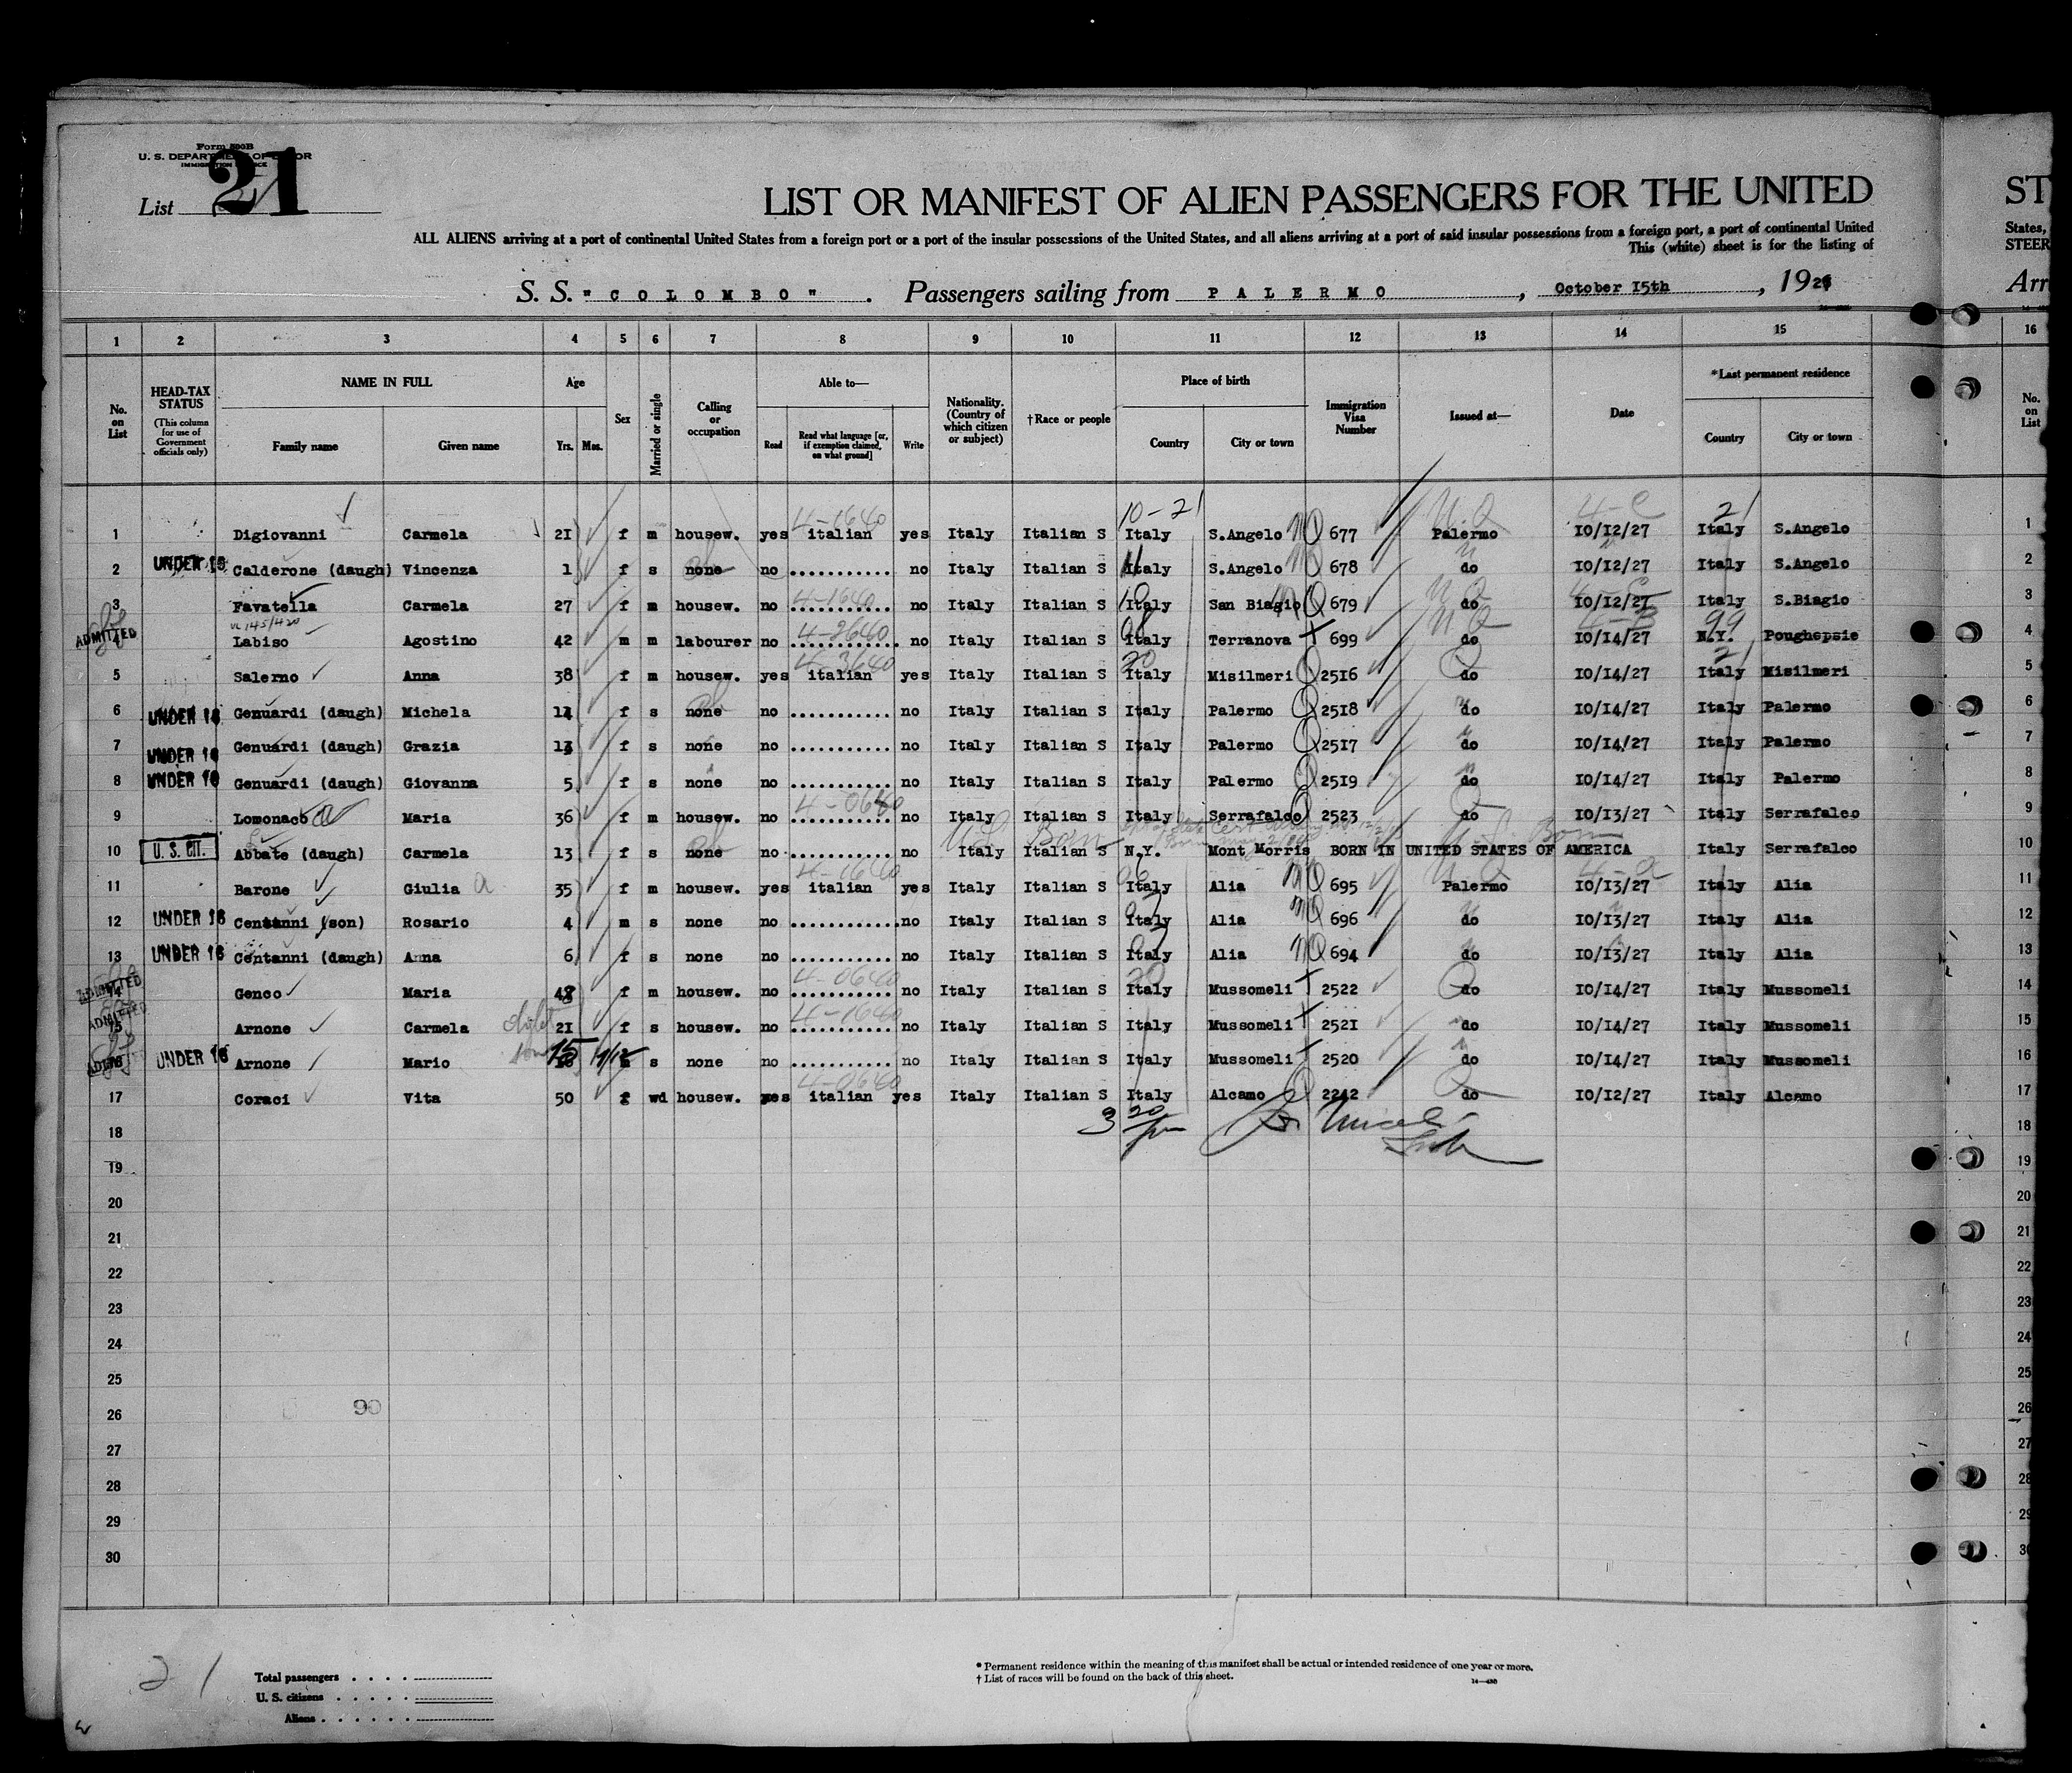 Form 500B
U. S. DEPARTMENT OF LABOR
IMMIGRATION SERVICE
List 21
LIST OR MANIFEST OF ALIEN PASSENGERS FOR THE UNITED
ST
ALL ALIENS arriving at a port of continental United States from a foreign port or a port of the insular possessions of the United States, and all aliens arriving at a port of said insular possessions from a foreign port, a port of continental United
States,
This (white) sheet is for the listing of
STEER
S. S. "COLOMBO". Passengers sailing from PALERMO, October 15th, 192
Arr
1 2 3 4 5 6 7 8 9 10 11 12 13 14 15 16
No. on List
HEAD-TAX STATUS (This column for use of Government officials only)
NAME IN FULL Family name Given name
Age Yrs. Mos.
Sex
Married or single
Calling or occupation
Able to— Read Read what language [or, if exemption claimed, on what ground] Write
Nationality. (Country of which citizen or subject)
†Race or people
Place of birth Country City or town
Immigration Visa Number
Issued at—
Date
*Last permanent residence Country City or town
No. on List
10-21 4-C 21
4-1640
1 Digiovanni Carmela 21 f m housew. yes italian yes Italy Italian S Italy S.Angelo NQ 677 Palermo 10/12/27 Italy S.Angelo 1
2 UNDER 16 Calderone (daugh) Vincenza 1 f s none no no Italy Italian S Italy S.Angelo 678 do 10/12/27 Italy S.Angelo 2
4-1640
3 Favatella Carmela 27 f m housew. no no Italy Italian S Italy San Biagio 679 do 10/12/27 Italy S.Biagio 3
4-2640 4-B 99
4 ADMITTED Labiso Agostino 42 m m labourer no no Italy Italian S Italy Terranova 699 do 10/14/27 N.Y. Poughepsie 4
4-3640 20 21
5 Salerno Anna 38 f m housew. yes italian yes Italy Italian S Italy Misilmeri Q 2516 do 10/14/27 Italy Misilmeri 5
6 UNDER 16 Genuardi (daugh) Michela f s none no no Italy Italian S Italy Palermo Q 2518 do 10/14/27 Italy Palermo 6
7 UNDER 16 Genuardi (daugh) Grazia 13 f s none no no Italy Italian S Italy Palermo Q 2517 do 10/14/27 Italy Palermo 7
8 UNDER 16 Genuardi (daugh) Giovanna 5 f s none no no Italy Italian S Italy Palermo Q 2519 do 10/14/27 Italy Palermo 8
4-0640
9 Lomonaco Maria 36 f m housew. no no Italy Italian S Italy Serrafalco Q 2523 do 10/13/27 Italy Serrafalco 9
U.S. Born U.S. Born
10 U. S. CIT. Abbate (daugh) Carmela 13 f s none no no Italy Italian S N.Y. Mont Morris BORN IN UNITED STATES OF AMERICA Italy Serrafalco 10
4-1640
11 Barone Giulia 35 f m housew. yes italian yes Italy Italian S Italy Alia NQ 695 Palermo 10/13/27 Italy Alia 11
12 UNDER 16 Centanni (son) Rosario 4 m s none no no Italy Italian S Italy Alia NQ 696 do 10/13/27 Italy Alia 12
13 UNDER 16 Centanni (daugh) Anna 6 f s none no no Italy Italian S Italy Alia NQ 694 do 10/13/27 Italy Alia 13
4-0640 20
14 ADMITTED Genco Maria 48 f m housew. no no Italy Italian S Italy Mussomeli 2522 do 10/14/27 Italy Mussomeli 14
4-1640
15 ADMITTED Arnone Carmela 21 f s housew. no no Italy Italian S Italy Mussomeli 2521 do 10/14/27 Italy Mussomeli 15
16 UNDER 16 Arnone Mario son 15 11/12 s none no no Italy Italian S Italy Mussomeli 2520 do 10/14/27 Italy Mussomeli 16
4-0640
17 Coraci Vita 50 f wd housew. yes italian yes Italy Italian S Italy Alcamo Q 2242 do 10/12/27 Italy Alcamo 17
18 18
19 19
20 20
21 21
22 22
23 23
24 24
25 25
26 90 26
27 27
28 28
29 29
30 30
21
Total passengers . . . .
U. S. citizens . . . . .
Aliens . . . . . .
* Permanent residence within the meaning of this manifest shall be actual or intended residence of one year or more.
† List of races will be found on the back of this sheet.